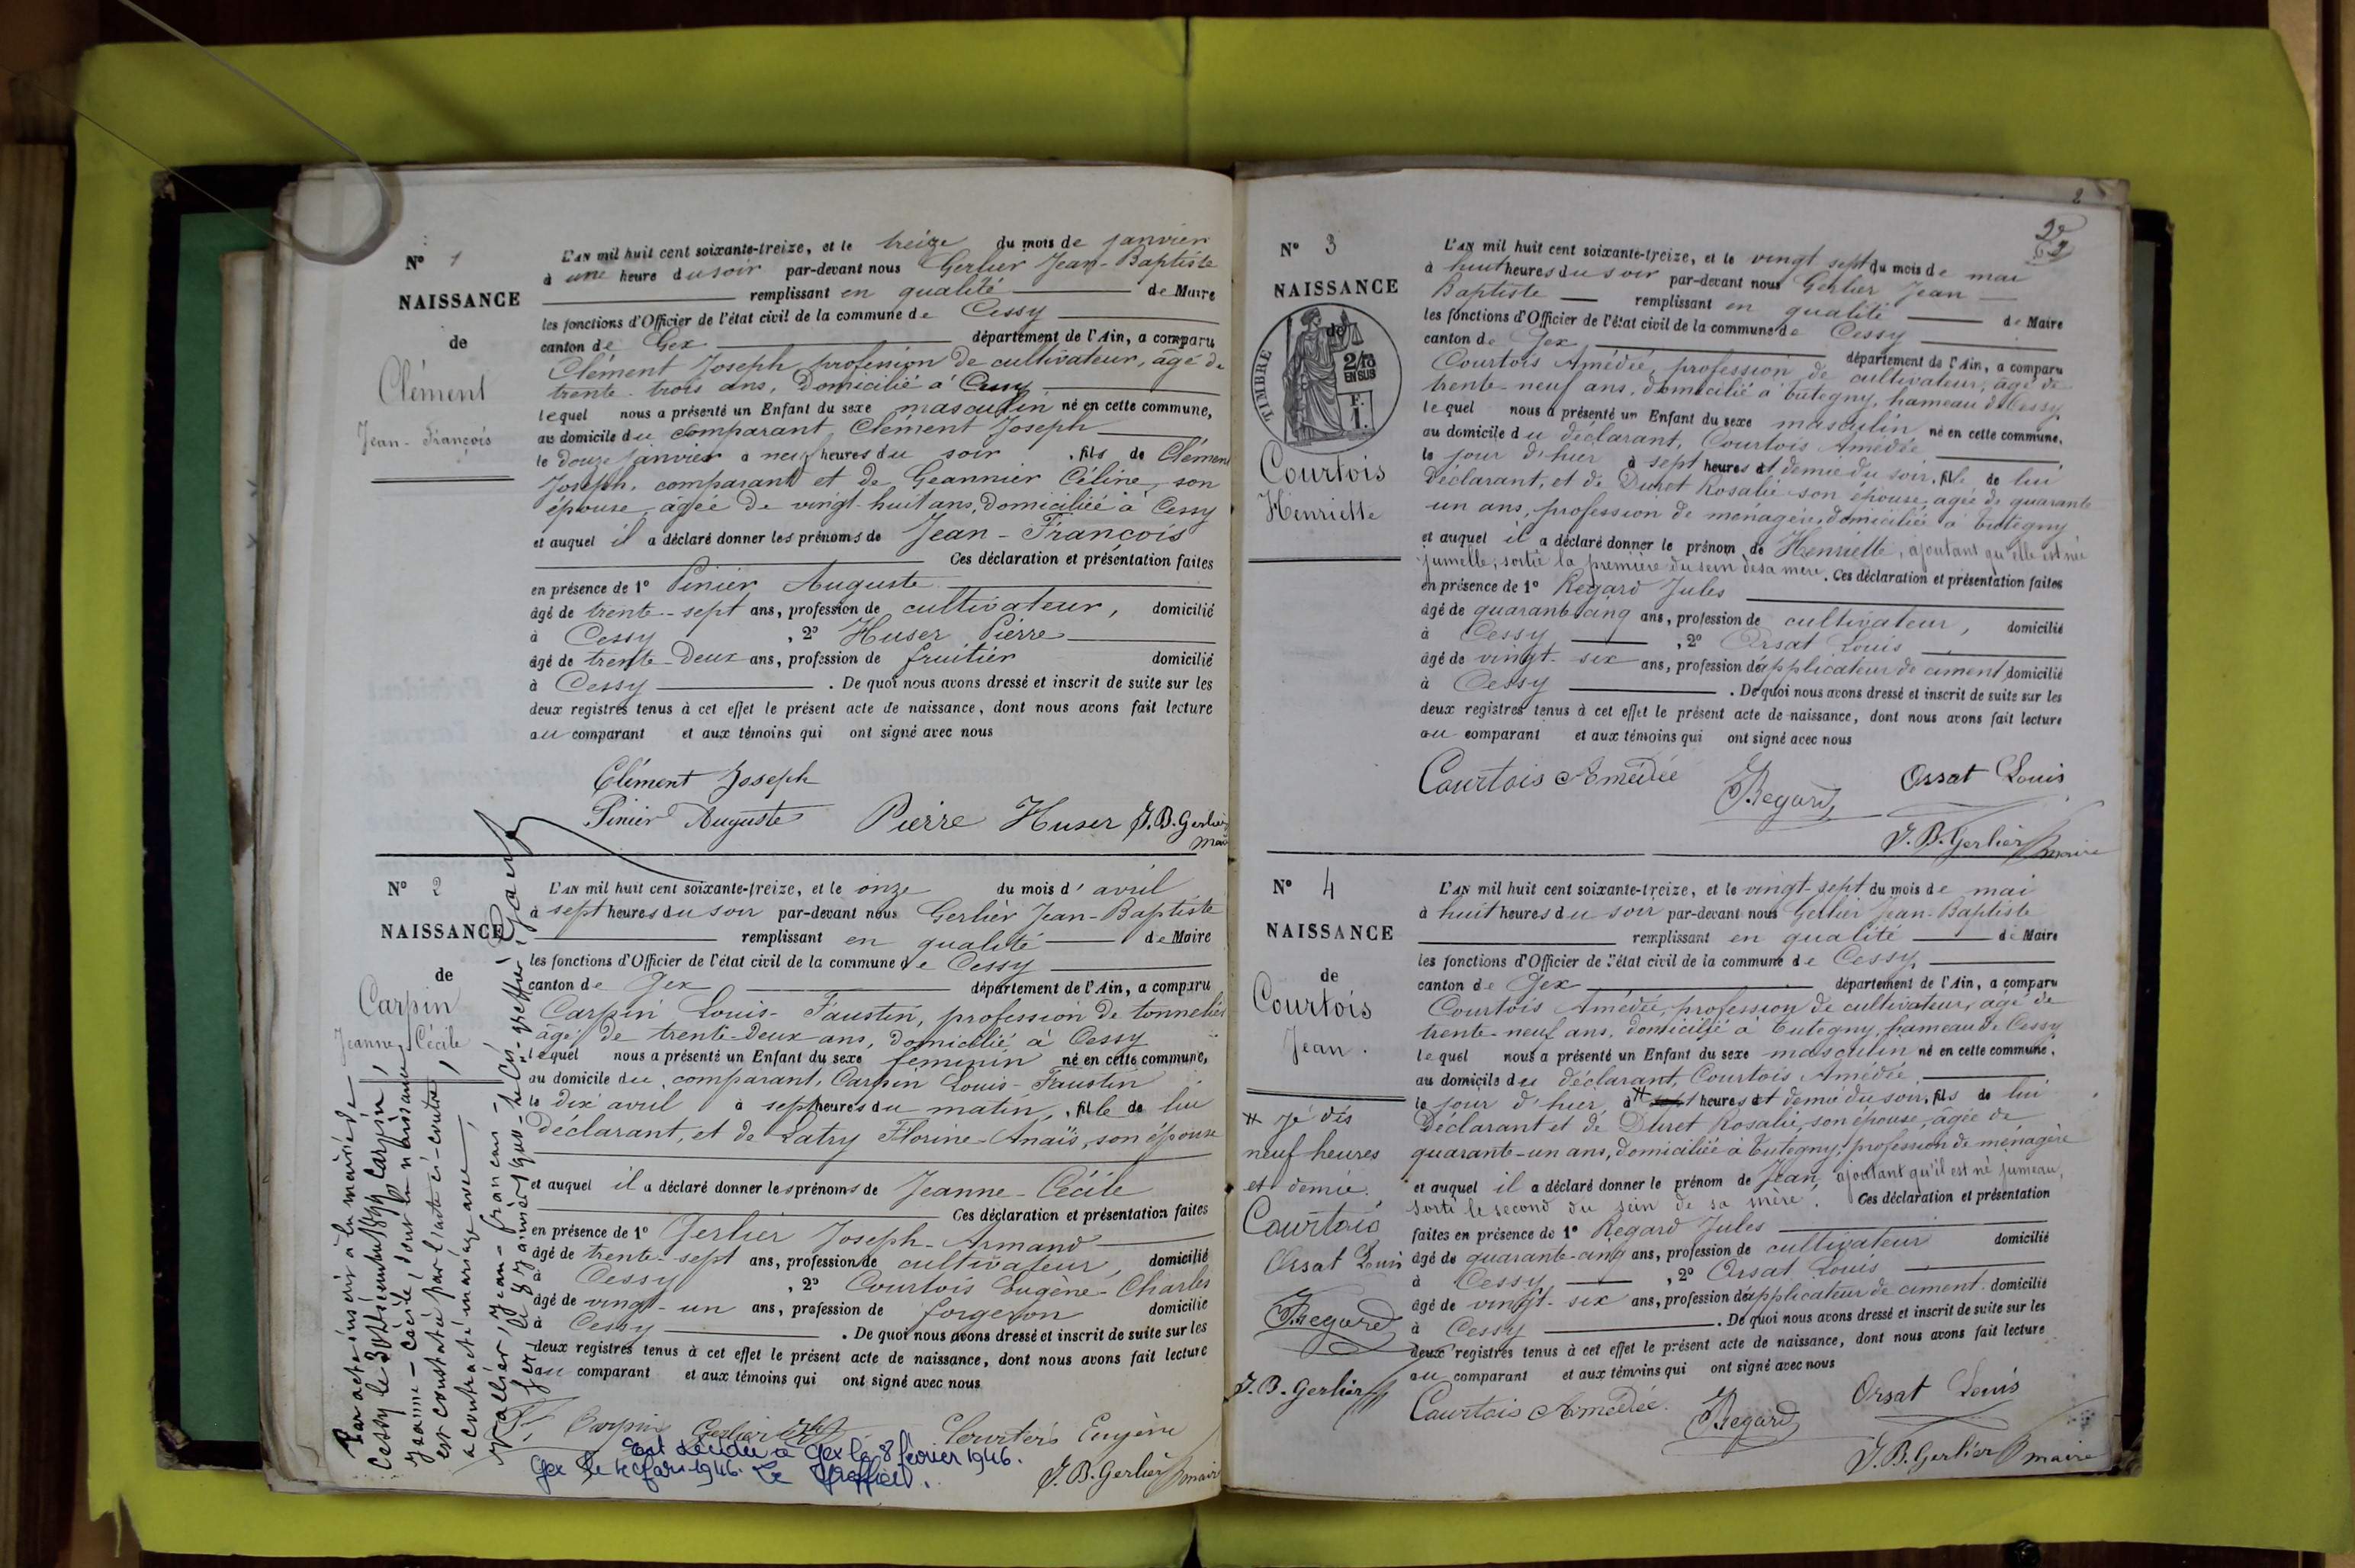 N° 1
NAISSANCE
de
Clément
Jean-François
L'AN mil huit cent soixante-treize, et le treize du mois de janvier
à une heure du soir par-devant nous Gerlier Jean-Baptiste
remplissant en qualité de Maire
les fonctions d'Officier de l'état civil de la commune de Cessy
canton de Gex département de l'Ain, a comparu
Clément Joseph, profession de cultivateur, âgé de
trente-trois ans, domicilié à Cessy
lequel nous a présenté un Enfant du sexe masculin né en cette commune,
au domicile du comparant, Clément Joseph
le douze janvier à neuf heures du soir, fils de Clément
Joseph, comparant et de Geannier Céline, son
épouse, âgée de vingt-huit ans, domiciliée à Cessy
et auquel il a déclaré donner les prénoms de Jean-François
Ces déclaration et présentation faites
en présence de 1° Pinier Auguste
âgé de trente-sept ans, profession de cultivateur, domicilié
à Cessy, 2° Huser Pierre
âgé de trente-deux ans, profession de fruitier domicilié
à Cessy. De quoi nous avons dressé et inscrit de suite sur les
deux registres tenus à cet effet le présent acte de naissance, dont nous avons fait lecture
au comparant et aux témoins qui ont signé avec nous
Clément Joseph
Pinier Auguste Pierre Huser J.B. Gerlier
maire
N° 2
NAISSANCE
de
Carpin
Jeanne-Cécile
L'AN mil huit cent soixante-treize, et le onze du mois d'avril
à sept heures du soir par-devant nous Gerlier Jean-Baptiste
remplissant en qualité de Maire
les fonctions d'Officier de l'état civil de la commune de Cessy
canton de Gex département de l'Ain, a comparu
Carpin Louis-Faustin, profession de tonnelier
âgé de trente-deux ans, domicilié à Cessy
lequel nous a présenté un Enfant du sexe féminin né en cette commune,
au domicile du comparant, Carpin Louis-Faustin
le dix avril à sept heures du matin, fille de lui
déclarant, et de Latry Florine-Anaïs, son épouse
et auquel il a déclaré donner les prénoms de Jeanne-Cécile
Ces déclaration et présentation faites
en présence de 1° Gerlier Joseph-Armand
âgé de trente-sept ans, profession de cultivateur, domicilié
à Cessy, 2° Courtois Eugène-Charles
âgé de vingt-un ans, profession de forgeron domicilié
à Cessy. De quoi nous avons dressé et inscrit de suite sur les
deux registres tenus à cet effet le présent acte de naissance, dont nous avons fait lecture
au comparant et aux témoins qui ont signé avec nous
Carpin Gerlier Courtois Eugène
J.B. Gerlier maire
Est décédée à Gex le 8 février 1946.
Gex le 1946. Le Greffier.
Par acte inscrit à la mairie de
Cessy le 30 décembre 1899 Carpin,
Jeanne-Cécile, dont la naissance
est constatée par l'acte ci-contre,
a contracté mariage avec
Vallier, Jean-François
Gex, le 8 janvier 1900. Le Cis-greffier
N° 3
NAISSANCE
de
TIMBRE
2/10
EN SUS
F.
1.
Courtois
Henriette
2
2e
L'AN mil huit cent soixante-treize, et le vingt-sept du mois de mai
à huit heures du soir par-devant nous Gerlier Jean-
Baptiste remplissant en qualité de Maire
les fonctions d'Officier de l'état civil de la commune de Cessy
canton de Gex département de l'Ain, a comparu
Courtois Amédée, profession de cultivateur, âgé de
trente-neuf ans, domicilié à Tutegny, hameau de Cessy,
lequel nous a présenté un Enfant du sexe masculin né en cette commune,
au domicile du déclarant, Courtois Amédée
le jour d'hier à sept heures et demie du soir, fille de lui
déclarant, et de Duret Rosalie son épouse, âgée de quarante
un ans, profession de ménagère, domiciliée à Tutegny
et auquel il a déclaré donner le prénom de Henriette, ajoutant qu'elle est née
jumelle, sortie la première du sein de sa mère. Ces déclaration et présentation faites
en présence de 1° Regard Jules
âgé de quarante-cinq ans, profession de cultivateur, domicilié
à Cessy, 2° Orsat Louis
âgé de vingt-six ans, profession d'applicateur de ciment domicilié
à Cessy. De quoi nous avons dressé et inscrit de suite sur les
deux registres tenus à cet effet le présent acte de naissance, dont nous avons fait lecture
au comparant et aux témoins qui ont signé avec nous
Courtois Amédée Regard Orsat Louis
J.B. Gerlier maire
N° 4
NAISSANCE
de
Courtois
Jean.
# Je dis
neuf heures
et demie.
Courtois
Orsat Louis
Regard
J.B. Gerlier
L'AN mil huit cent soixante-treize, et le vingt-sept du mois de mai
à huit heures du soir par-devant nous Gerlier Jean-Baptiste
remplissant en qualité de Maire
les fonctions d'Officier de l'état civil de la commune de Cessy,
canton de Gex département de l'Ain, a comparu
Courtois Amédée, profession de cultivateur, âgé de
trente-neuf ans, domicilié à Tutegny, hameau de Cessy
lequel nous a présenté un Enfant du sexe masculin né en cette commune,
au domicile du déclarant, Courtois Amédée,
le jour d'hier, à # sept heures et demie du soir, fils de lui
déclarant et de Duret Rosalie, son épouse, âgée de
quarante-un ans, domiciliée à Tutegny, profession de ménagère
et auquel il a déclaré donner le prénom de Jean, ajoutant qu'il est né jumeau,
sorti le second du sein de sa mère. Ces déclaration et présentation
faites en présence de 1° Regard Jules
âgé de quarante-cinq ans, profession de cultivateur domicilié
à Cessy, 2° Orsat Louis
âgé de vingt-six ans, profession d'applicateur de ciment domicilié
à Cessy. De quoi nous avons dressé et inscrit de suite sur les
deux registres tenus à cet effet le présent acte de naissance, dont nous avons fait lecture
au comparant et aux témoins qui ont signé avec nous
Courtois Amédée. Regard Orsat Louis
J.B. Gerlier maire